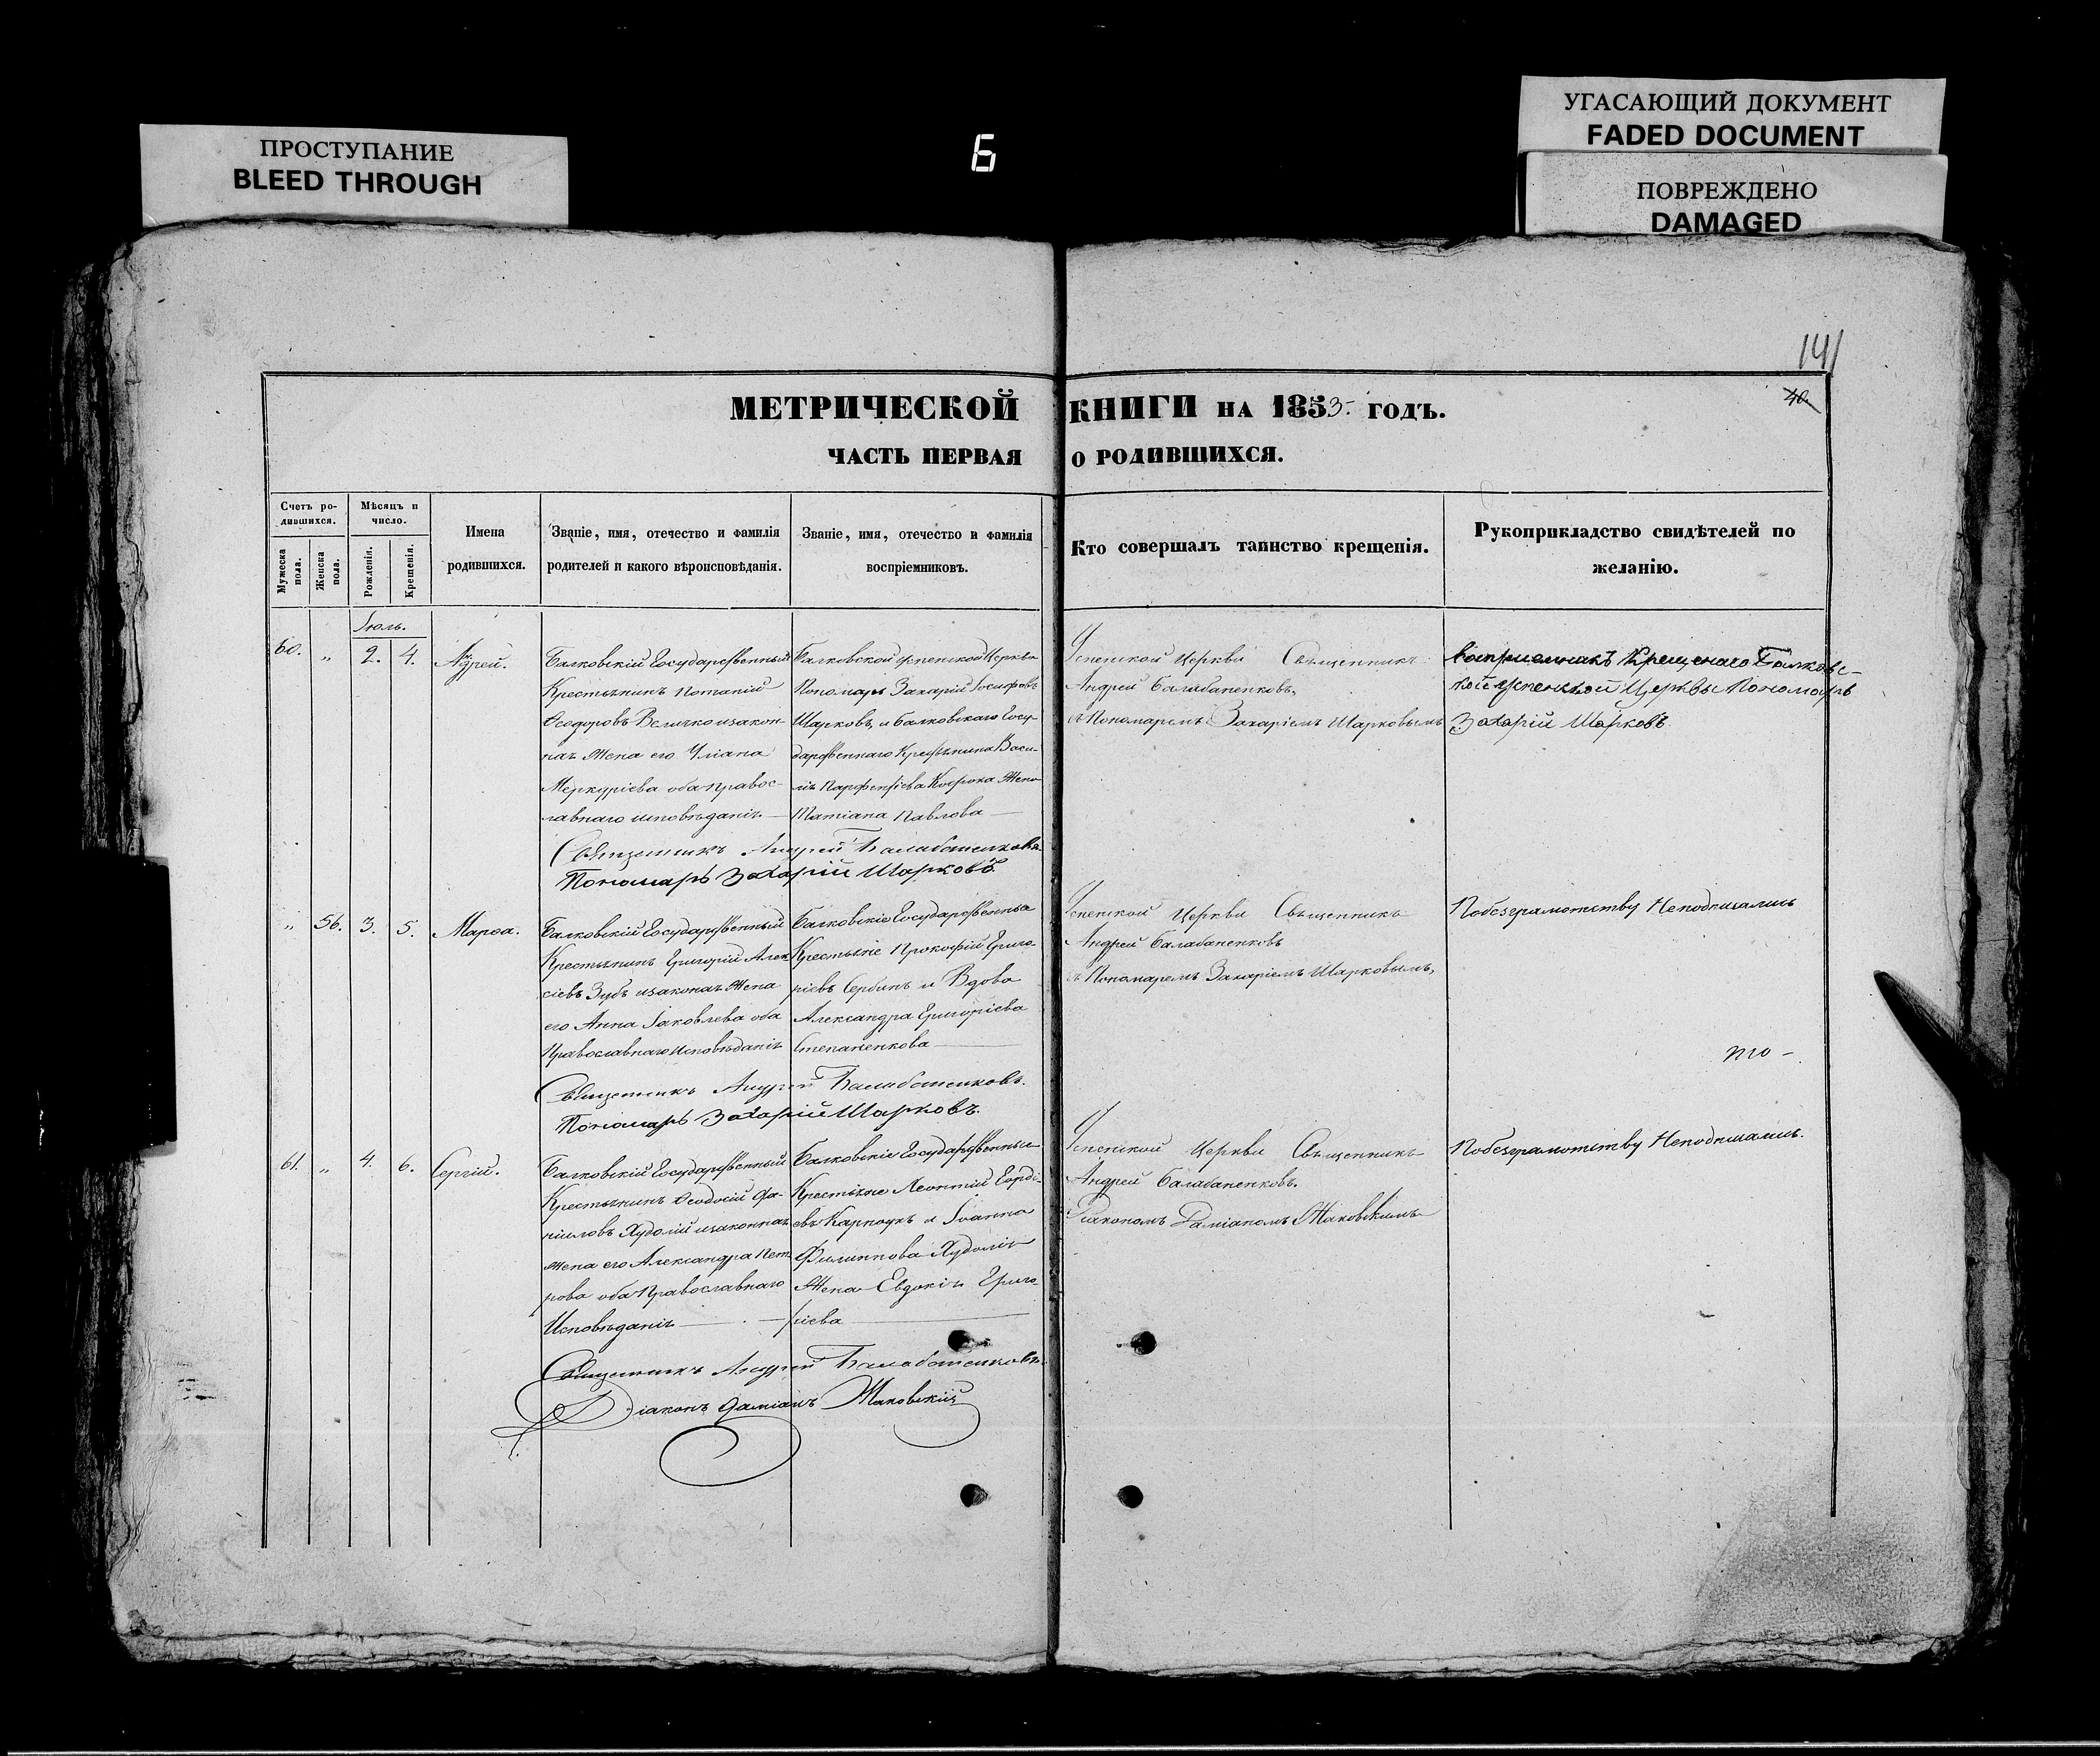 ПРОСТУПАНИЕ
BLEED THROUGH
6
УГАСАЮЩИЙ ДОКУМЕНТ
FADED DOCUMENT
ПОВРЕЖДЕНО
DAMAGED
141
40.
МЕТРИЧЕСКОЙ КНИГИ НА 1853- ГОДЪ.
ЧАСТЬ ПЕРВАЯ О РОДИВШИХСЯ.
Счетъ ро-
дившихся.
Мужеска пола.
Женска пола.
Мѣсяцъ и
число.
Рожденія.
Крещенія.
Имена
родившихся.
Званіе, имя, отечество и фамилія
родителей и какого вѣроисповѣданія.
Званіе, имя, отечество и фамилія
воспріемниковъ.
Кто совершалъ таинство крещенія.
Рукоприкладство свидѣтелей по
желанію.
Іюль.
60. „ 2. 4. Андрей.
Балковскій Государственный
Крестьянинъ Потапій
Ѳеодоровъ Величко и закон-
ная Жена его Уліана
Меркуріева оба правос-
лавнаго исповѣданія
Балковской Успенской Церкви
Пономарь Захарій Іосифовъ
Шарковъ, и Балковскаго Госу-
дарственнаго Крестьянина Васи-
лія Парфентіева Жена
Татіана Павлова
Успенской Церкви Священникъ
Андрей Балабаненковъ.
съ Пономаремъ Захаріемъ Шарковымъ
Воспріемникъ Крещенаго Балковс-
кой Успенской Церквы Пономарь
Захарій Шарковъ
Священникъ Андрей Балабаненковъ
Пономарь Захарій Шарковъ
„ 56. 3. 5. Марѳа.
Балковскій Государственный
Крестьянинъ Григорій Алек-
сіевъ Зубъ и законая Жена
его Анна Іаковлева оба
Православнаго исповѣданія
Балковскіе Государственные
Крестьяне Прокофій Григо-
ріевъ Сербинъ и Вдова
Александра Григоріева
Степаненкова
Успенской Церкви Священникъ
Андрей Балабаненковъ
съ Пономаремъ Захаріемъ Шарковымъ,
Побезграмотству Неподписались
Священникъ Андрей Балабаненковъ.
Пономарь Захарій Шарковъ.
61. „ 4. 6. Сергій.
Балковскій Государственный
Крестьянинъ Ѳеодосій Да-
ніиловъ Худолій и законная
жена его Александра Пет-
рова оба Православнаго
Исповѣданія
Балковскіе Государственные
Крестьяне Леонтій Горді-
евъ Карпоукъ и Іоанна
Филиппова Худолія
Жена Евдокія Григо-
ріева
Успенской Церкви Священникъ
Андрей Балабаненковъ.
Діакономъ Даміаномъ Маковскимъ
Побезграмотству Неподписались.
Священникъ Андрей Балабаненковъ
Діаконъ Даміанъ Маковскій